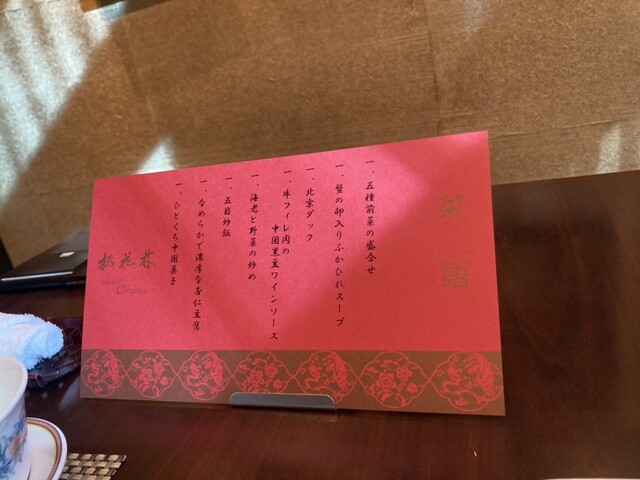 菜譜
一、五種前菜の盛合せ
一、蟹の卵入りふかひれスープ
一、北京ダック
一、牛フィレ肉の
中国黒豆ワインソース
一、海老と野菜の炒め
一、五目炒飯
一、なめらかで濃厚な杏仁豆腐
一、ひとくち中国菓子
桃花林
Okura